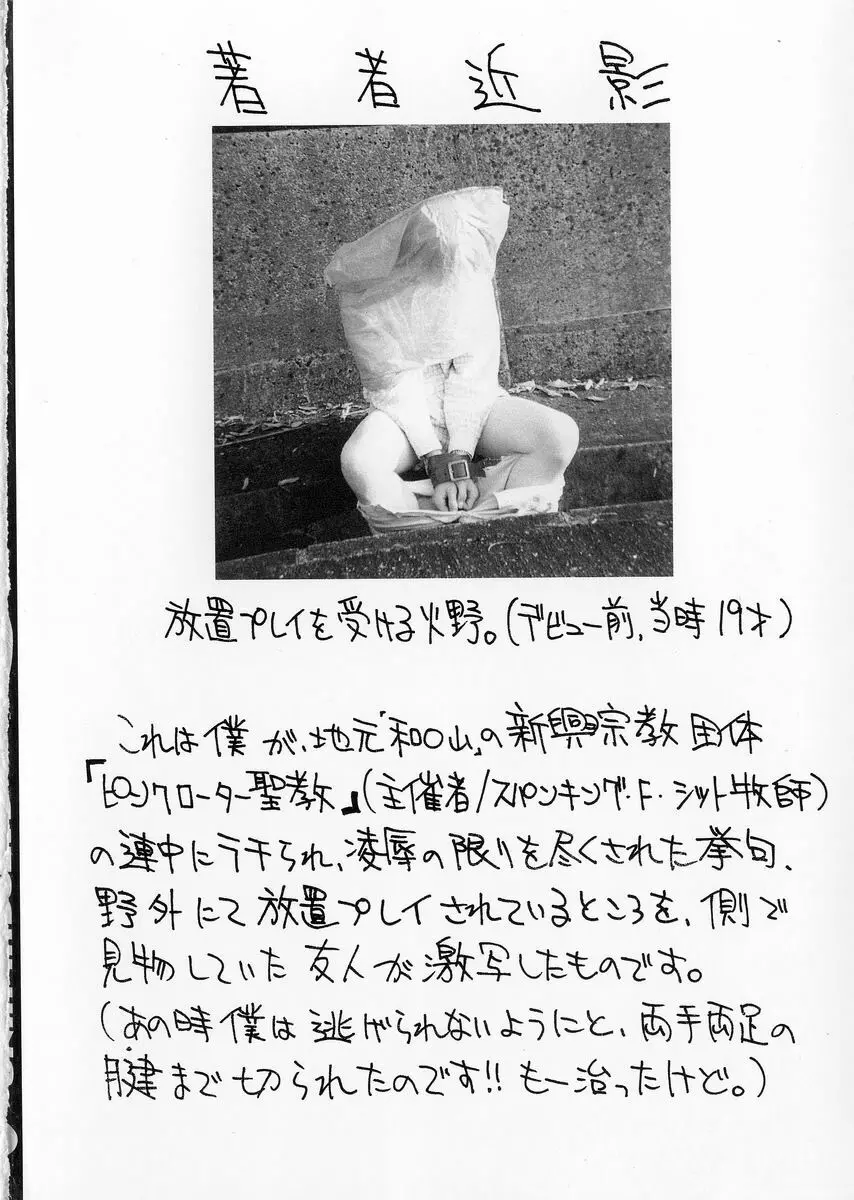 著者近影
放置プレイを受ける火野。(デビュー前,当時19才)
これは僕が、地元「和〇山」の新興宗教団体
『ピンクローター聖教』(主催者/スパンキング・F・シット牧師)
の連中にラチられ、凌辱の限りを尽くされた挙句、
野外にて放置プレイされているところを、側で
見物していた友人が激写したものです。
(あの時僕は逃げられないようにと、両手両足の
腱まで切られたのです!!もー治ったけど。)